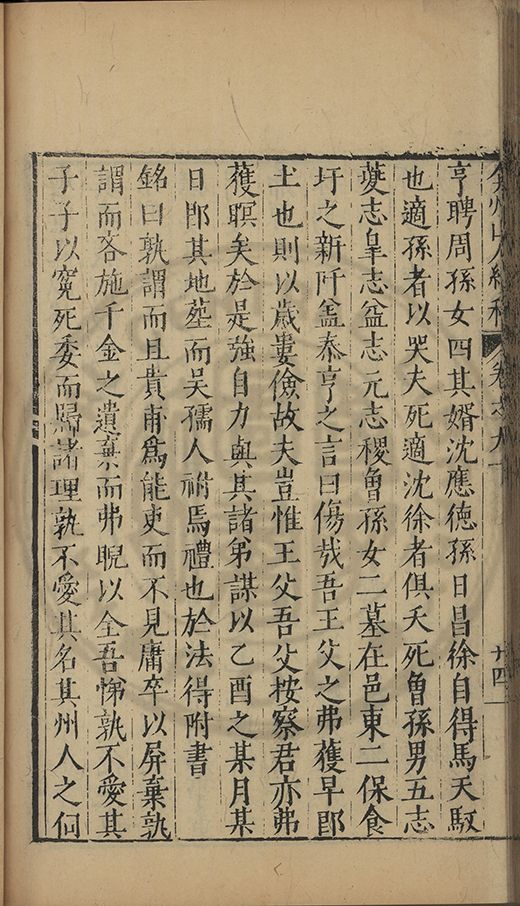 弇州山人續稿 卷之九十 廿四
亨聘周孫女四其婿沈應德孫日昌徐自得馬天馭
也適孫者以哭夫死適沈徐者俱夭死曾孫男五志
夔志皐志益志元志稷曾孫女二墓在邑東二保食
圩之新阡盖泰亨之言曰傷哉吾王父之弗獲早卽
土也則以歲婁儉故夫豈惟王父吾父按察君亦弗
獲瞑矣於是強自力與其諸弟謀以乙酉之某月某
日卽其地塟而吳孺人祔焉禮也於法得附書
銘曰孰謂而且貴甫爲能吏而不見庸卒以屏棄孰
謂而吝施千金之遺棄而弗睨以全吾悌孰不愛其
子子以寃死委而歸諸理孰不愛其名其州人之何